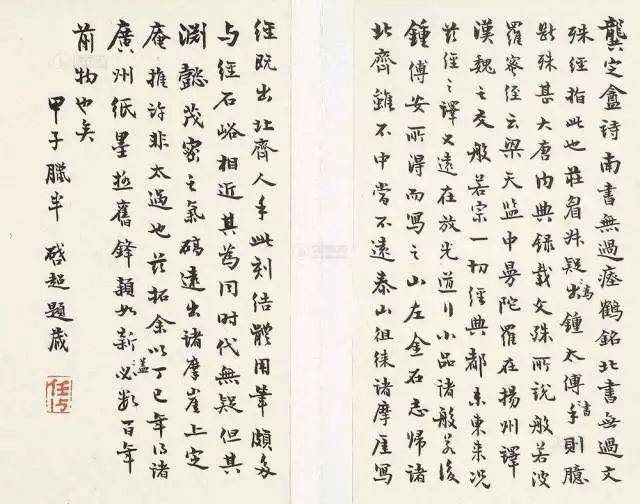 龔定盦詩南書無過瘞鶴銘北書無過文
殊經指此也莊眉叔疑為出鍾太傅手書則臆
斷殊甚大唐內典錄載文殊所說般若波
羅蜜經云梁天監中曼陀羅在揚州譯
漢魏之交般若宗一切經典都未東來況
茲經之譯又遠在放光道行小品諸般若後
鍾傅安所得而寫之山左金石志歸諸
北齊雖不中當不遠泰山徂徠諸摩厓寫
經既出北齊人手此刻結體用筆頗多
与經石峪相近其為同時代無疑但其
淵懿茂密之氣碻遠出諸摩崖上定
庵推許非太過也茲拓余以丁巳年得諸
廣州紙墨極舊鋒穎如新蓋必數百年
前物也矣
甲子臘半 啓超題藏
任公